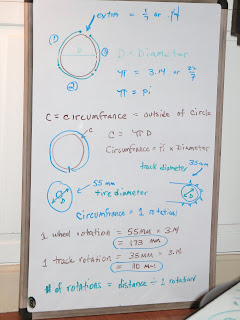 extra = 1/7 or .14
① D ③
②
D = Diameter
π = 3.14 or 22/7
π = pi
C = circumfrance = outside of circle
C
C = π D
Circumfrance = Pi x Diameter
track diameter 35mm
55 mm
tire diameter
circumfrance = 1 rotation
1 wheel rotation = 55mm x 3.14
= 173 mm
1 track rotation = 35mm x 3.14
= 110 mm
# of rotations = distance ÷ 1 rotation